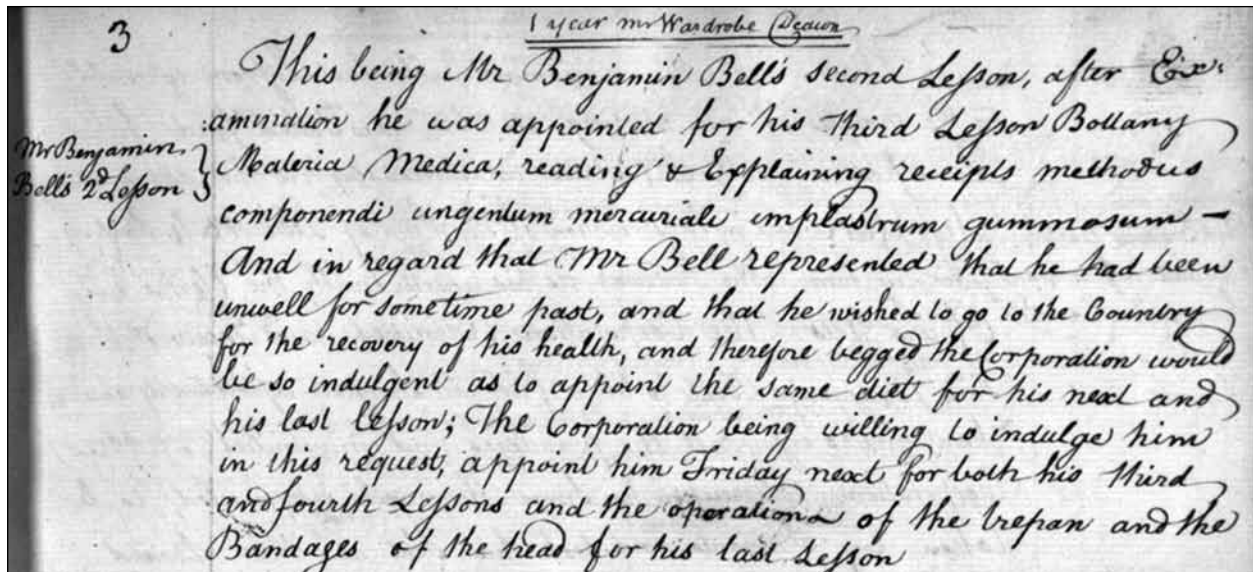 3
1 year mr Wardrobe Deacon
This being Mr Benjamin Bell's second Lesson, after Ex:
:amination he was appointed for his third Lesson Bottany
Mr Benjamin
Bell's 2d Lesson
Materia Medica, reading & Explaining receipts methodus
componendi ungentum mercuriale emplastrum gummosum —
And in regard that Mr Bell represented that he had been
unwell for sometime past, and that he wished to go to the Country
for the recovery of his health, and therefore begged the Corporation would
be so indulgent as to appoint the same diet for his next and
his last lesson; The Corporation being willing to indulge him
in this request, appoint him Friday next for both his third
and fourth Lessons and the operations of the trepan and the
Bandages of the head for his last Lesson